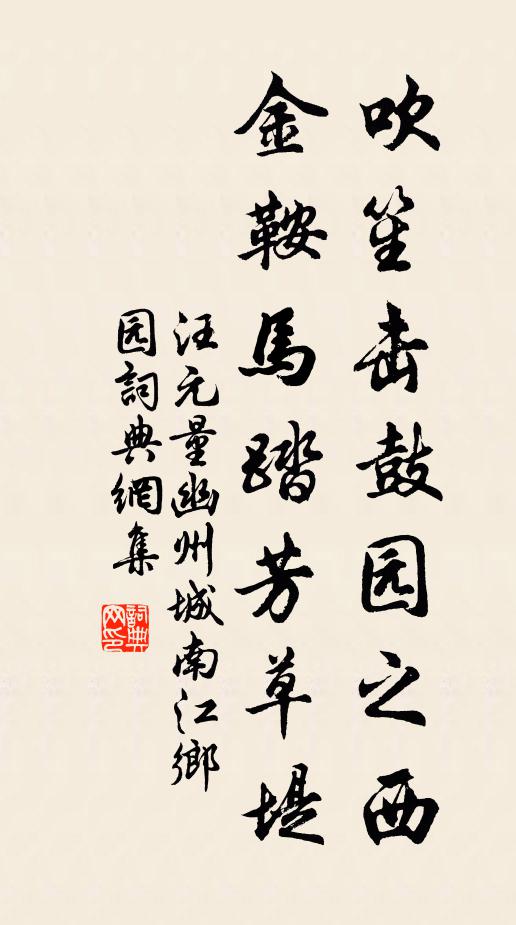 吹笙击鼓园之西
金鞍馬踏芳草堤
汪元量幽州城南江鄉
园詞典網集
詞典
网印